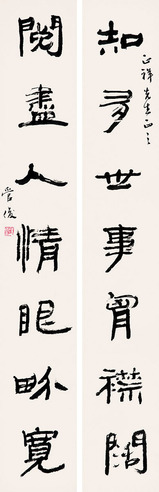 知多世事胷襟闊
正祥先生正之
閱盡人情眼畍寬
管俊